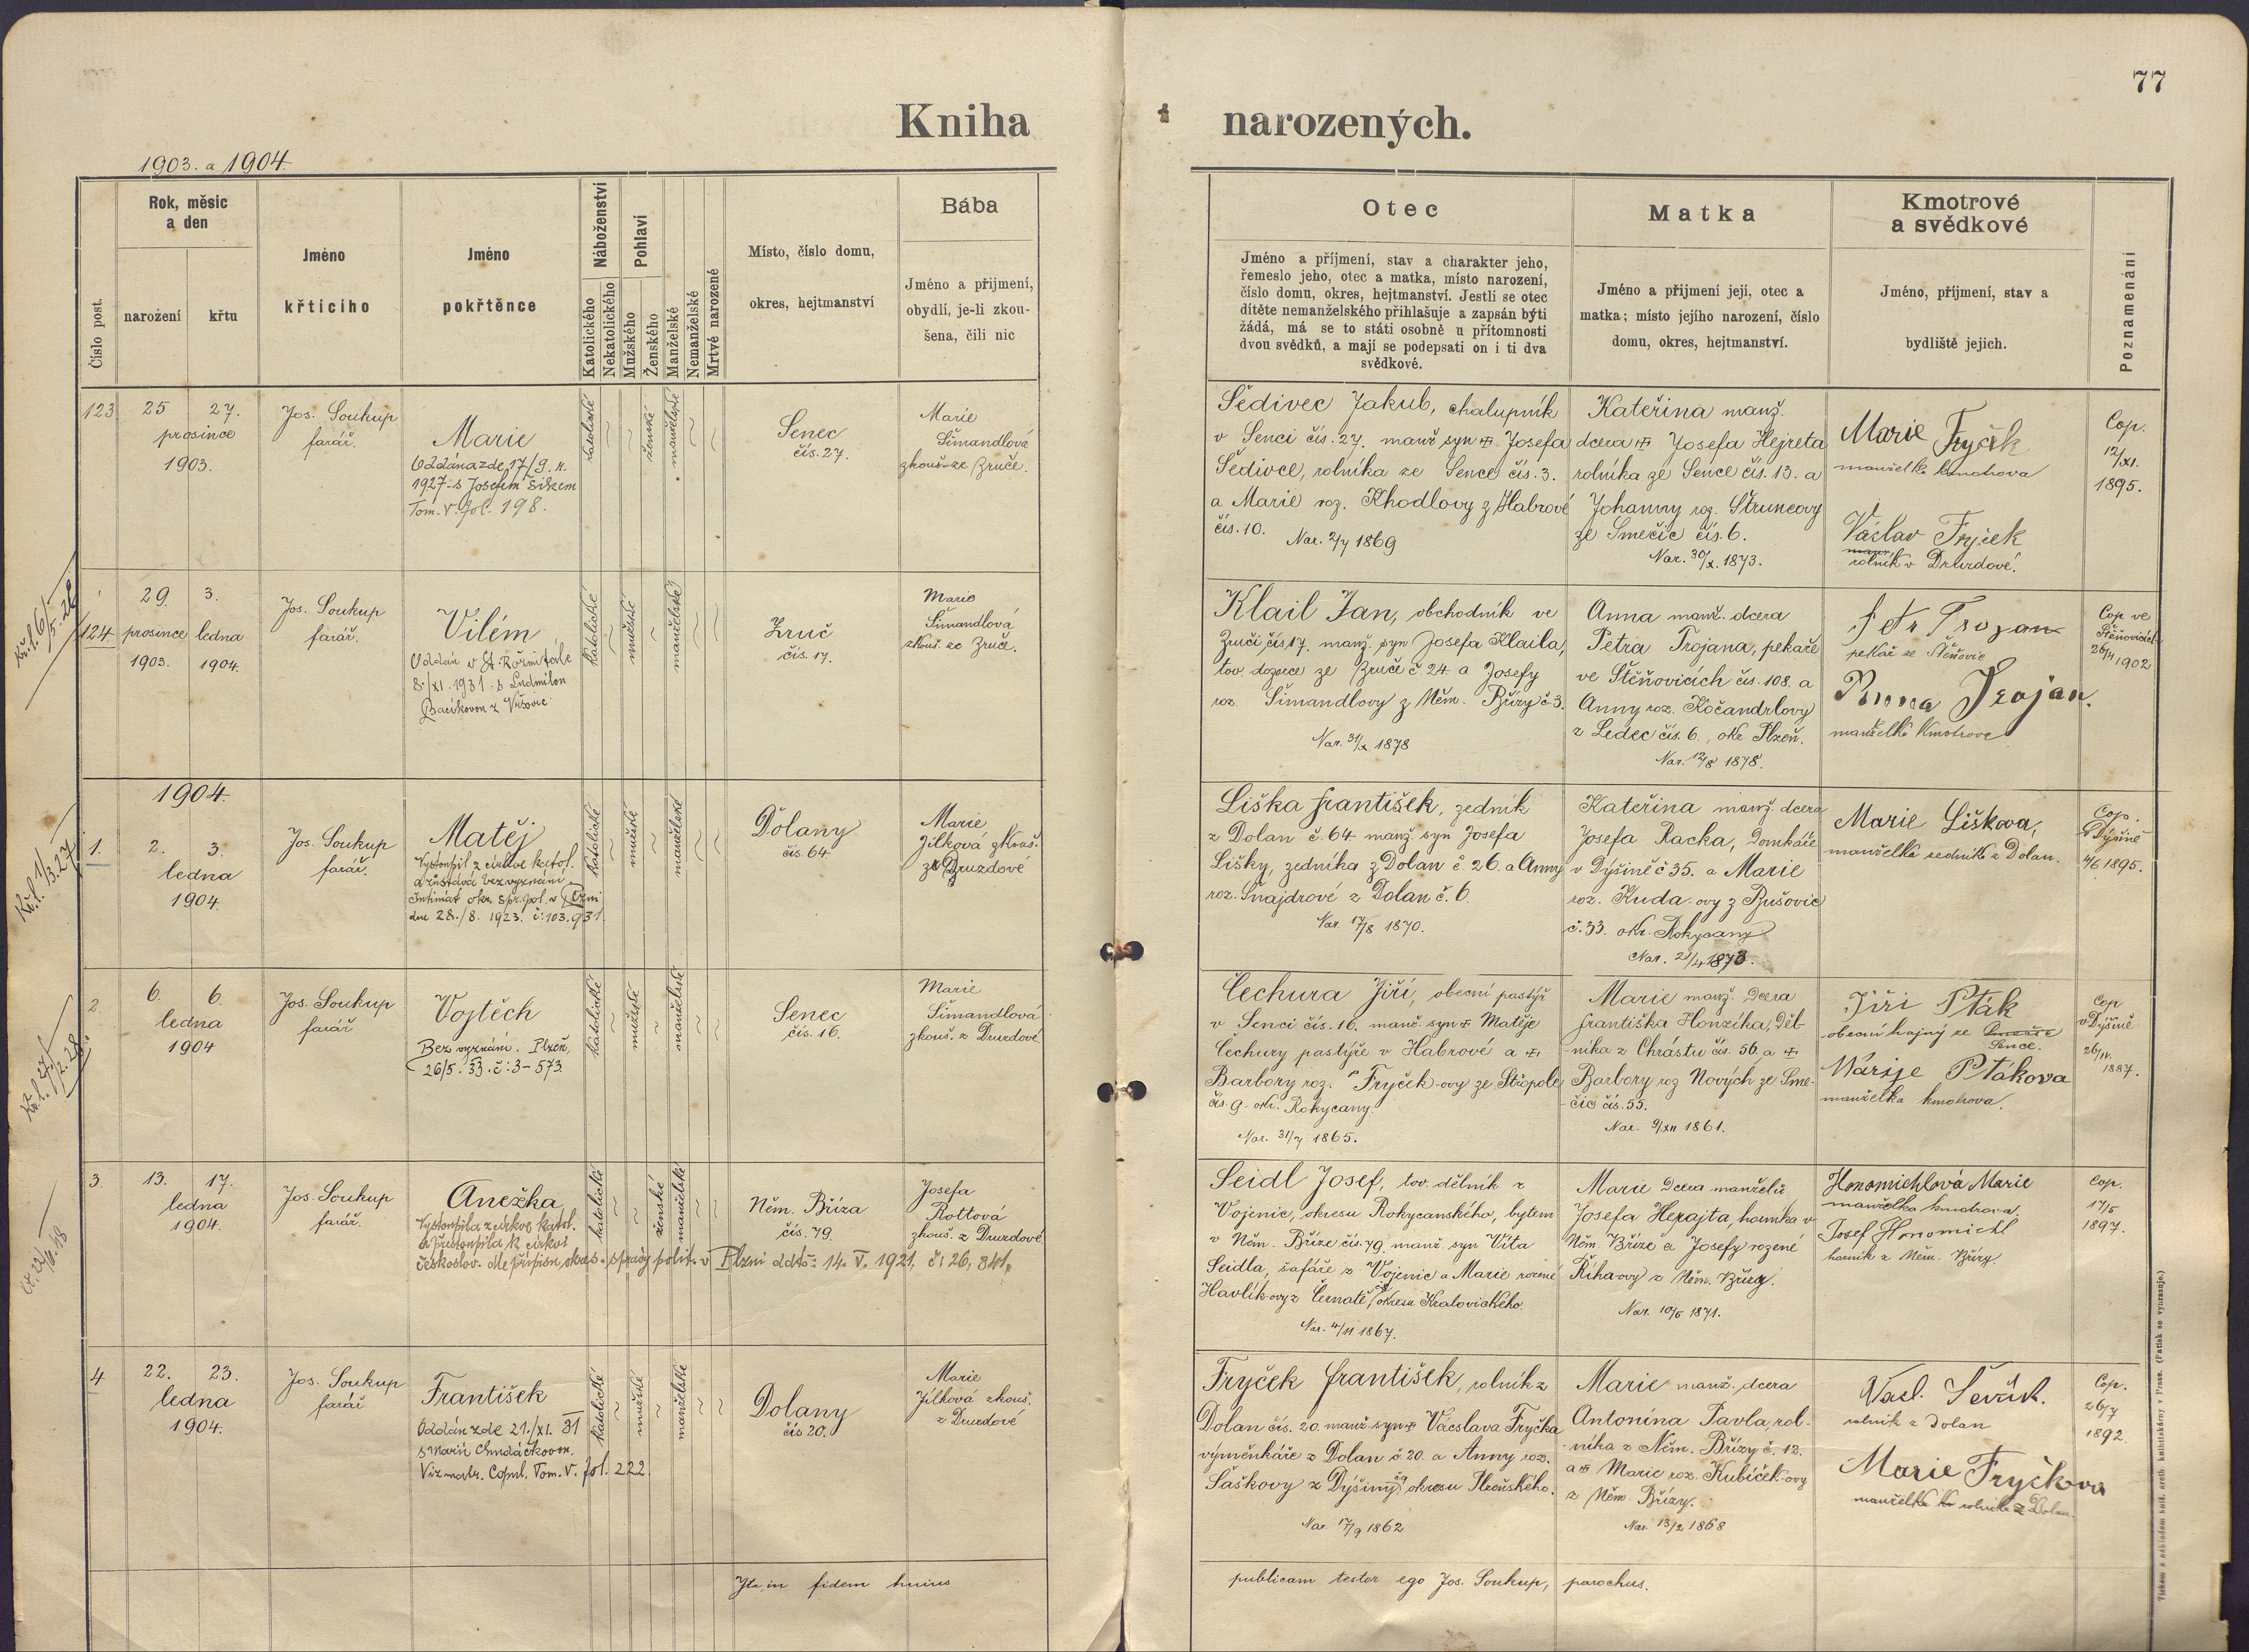 77
Kniha narozených.
1903. a 1904.
Číslo post.
Rok, měsíc
a den
narození
křtu
Jméno
křtícího
Jméno
pokřtěnce
Náboženství
Katolického
Nekatolického
Pohlaví
Mužského
Ženského
Manželské
Nemanželské
Mrtvé narozené
Místo, číslo domu,
okres, hejtmanství
Bába
Jméno a přijmení,
obydlí, je-li zkou-
šena, čili nic
Otec
Jméno a příjmení, stav a charakter jeho,
řemeslo jeho, otec a matka, místo narození,
číslo domu, okres, hejtmanství. Jestli se otec
dítěte nemanželského přihlašuje a zapsán býti
žádá, má se to státi osobně u přítomnosti
dvou svědků, a mají se podepsati on i ti dva
svědkové.
Matka
Jméno a přijmení její, otec a
matka; místo jejího narození, číslo
domu, okres, hejtmanství.
Kmotrové
a svědkové
Jméno, příjmení, stav a
bydliště jejich.
Poznamenání
123
25 27.
prosince
1903.
Jos. Soukup
farář.
Marie
Oddána zde 17/9. n.
1927 s Josefem Šikem
Tom. V. fol. 198.
katolické
ženské
manželské
Senec
čís. 27.
Marie
Šimandlová
zkouš. ze Zruče.
Šedivec Jakub, chalupník
v Senci čís. 27. manž. syn Josefa
Šedivce, rolníka ze Sence čís. 3.
a Marie roz. Khodlovy z Habrové
čís. 10.
Nar. 2/7 1869
Kateřina manž.
dcera Josefa Hejreta
rolníka ze Sence čís. 13. a
Johanny roz. Štruncovy
ze Smečic čís. 6.
Nar. 30/X. 1873.
Marie Fryček
manželka kmotrova
Václav Fryček
rolník v Druzdové.
Cop.
12/XI.
1895.
124
29. 3.
prosince ledna
1903. 1904.
Jos. Soukup
farář.
Vilém
Oddán v St. Rožmitále
8./XI. 1931 s Ludmilou
z Vršovic
katolické
mužské
manželské
Zruč
čís. 17.
Marie
Šimandlová
zkouš. ze Zruče.
Klail Jan, obchodník ve
Zruči čís. 17. manž. syn Josefa Klaila,
tov. dozorce ze Zruče č. 24. a Josefy
roz. Šimandlovy z Něm. Břízy č. 3.
Nar. 31/X 1878
Anna manž. dcera
Petra Trojana, pekaře
ve Štěňovicích čís. 108. a
Anny roz. Kočandrlovy
z Ledec čís. 6., okr. Plzeň.
Nar. 12/8 1878.
Petr Trojan
pekař ze Štěňovic
Anna Trojan.
manželka kmotrova
Cop. ve
Štěňovicích
1902
1904.
1.
2. 3.
ledna
1904.
Jos. Soukup
farář.
Matěj
Vystoupil z církve katol.
a zůstává bez vyznání.
Intimát okr. spr. pol. v Plzni
dne 28./8. 1923. č: 103.931.
katolické
mužské
manželské
Dolany
čís. 64.
Marie
Jílková zkouš.
z Druzdové
Liška František, zedník
z Dolan č. 64 manž. syn Josefa
Lišky, zedníka z Dolan č. 26. a Anny
roz. Šnajdrové z Dolan č. 6.
Nar. 17/8 1870.
Kateřina manž. dcera
Josefa Racka, domkáře
v Dýšině č 35. a Marie
roz. Kuda-ovy z Bušovic
č. 33. okr. Rokycany
Nar. 1873.
Marie Lišková,
manželka zedníka z Dolan.
Cop.
v Dýšině
4/6 1895.
2.
6. 6.
ledna
1904
Jos. Soukup
farář
Vojtěch
Bez vyznání. Plzeň,
26/5. 33. č: 3-573.
katolické
mužské
manželské
Senec
čís. 16.
Marie
Šimandlová
zkouš. z Druzdové
Čechura Jiří, obecní pastýř
v Senci čís. 16. manž. syn Matěje
Čechury pastýře v Habrové a
Barbory roz. Fryček-ovy ze Střapole
čís. 9. okr. Rokycany.
Nar. 31/7 1865.
Marie manž. dcera
Františka Honzíka, děl-
-níka z Chrástu čís. 56. a
Barbory roz Nových ze Sme-
-čic čís. 55.
Nar. 9/XII 1861.
Jiři Pták
obecní hajný ze
Sence.
Marije Ptákova
manželka kmotrova.
Cop
v Dýšině
26/IV.
1887.
3.
13. 17.
ledna
1904.
Jos. Soukup
farář.
Anežka
Vystoupila z církve katol.
a přestoupila k církvi
českoslov. dle přípisu okres. správy polit. v Plzni ddto: 14. V. 1921. č: 26,841.
katolické
ženské
manželské
Něm. Bříza
čís. 79.
Josefa
Rottová
zkouš. z Druzdové
Seidl Josef, tov. dělník z
Vojenic, okresu Rokycanského, bytem
v Něm. Bříze čís. 79. manž. syn Víta
Seidla, šafáře z Vojenic a Marie rozené
Havlík-ovy z Černatě, okresu Kralovického.
Nar. 4/11 1867.
Marie dcera manželů
Josefa Herajta, horníka v
Něm. Bříze a Josefy rozené
Říha-ovy z Něm. Břízy.
Nar. 10/5 1871.
Honomichlová Marie
manželka kmotrova
Josef Honomichl
horník z Něm. Břízy.
Cop.
17/5
1897.
4
22. 23.
ledna
1904.
Jos. Soukup
farář
František
Oddán zde 21./XI. 31
s Marií Chudáčkovou.
Viz matr. Copul. Tom. V. fol. 222.
katolické
mužské
manželské
Dolany
čís 20.
Marie
Jílková zkouš.
z Druzdové
Fryček František, rolník z
Dolan čís. 20. manž. syn Václava Fryčka
výměnkáře z Dolan č. 20. a Anny roz.
Šaškovy z Dýšiny, okresu Plzeňského.
Nar. 17/9 1862
Marie manž. dcera
Antonína Pavla, rol-
-níka z Něm. Břízy č. 12.
a Marie roz. Kubíček-ovy
z Něm. Břízy.
Nar. 13/2 1868
Vacl. Ševčík.
rolník z Dolan
Marie Fryčkova
manželka rolníka z Dolan.
Cop.
26/7
1892.
Ita in fidem huius publicam testor ego Jos. Soukup, parochus.